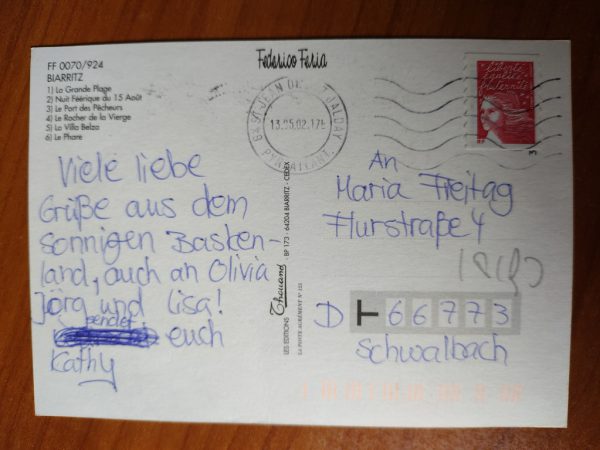 FF 0070/924
BIARRITZ
1) La Grande Plage
2) Nuit Féérique du 15 Août
3) Le Port des Pêcheurs
4) Le Rocher de la Vierge
5) La Villa Belza
6) Le Phare
Federico Feria
Viele liebe
Grüße aus dem
sonnigen Basken-
land, auch an Olivia
Jörg und Lisa!
sendet
euch
Kathy
LES EDITIONS Thouand - BP 173 - 64204 BIARRITZ - CEDEX
LA POSTE AGRÉMENT N°
64 ST JEAN DE
13.05.02.17H
PYR ATLANT.
liberté
égalité
fraternité
RF
An
Maria Freitag
Flurstraße 4
D T 66773
Schwalbach